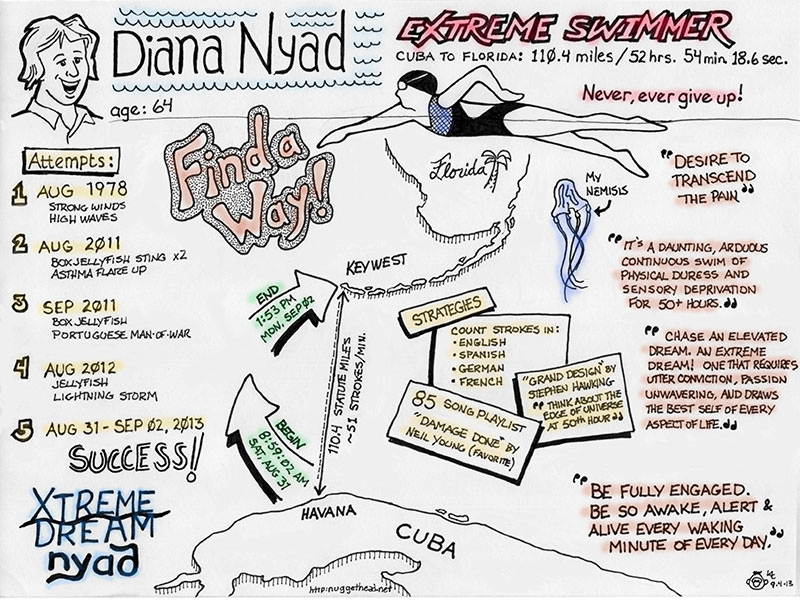 Diana Nyad
age: 64
EXTREME SWIMMER
CUBA TO FLORIDA: 110.4 miles/52hrs. 54min. 18.6 sec.
Never, ever give up!
Find a
Way!
Attempts:
1 AUG 1978
STRONG WINDS
HIGH WAVES
2 AUG 2011
BOX JELLYFISH STING x2
ASTHMA FLARE UP
3 SEP 2011
BOX JELLYFISH
PORTUGUESE MAN-OF-WAR
4 AUG 2012
JELLYFISH
LIGHTNING STORM
5 AUG 31 - SEP 02, 2013
SUCCESS!!
XTREME
DREAM
nyad
Florida
KEY WEST
END
1:53 PM
MON, SEP 02
110.4 STATUTE MILE'S
~51 STROKES/MIN.
BEGIN
8:59:02 AM
SAT, AUG 31
HAVANA
CUBA
http:nuggethead.net
MY
NEMISIS
STRATEGIES
COUNT STROKES IN:
• ENGLISH
• SPANISH
• GERMAN
• FRENCH
"GRAND DESIGN" BY
STEPHEN HAWKING
"THINK ABOUT THE
EDGE OF UNIVERSE
AT 50TH HOUR"
85 SONG PLAYLIST
"DAMAGE DONE" BY
NEIL YOUNG (FAVORITE)
"DESIRE TO
TRANSCEND
THE PAIN"
"IT'S A DAUNTING, ARDUOUS
CONTINUOUS SWIM OF
PHYSICAL DURESS AND
SENSORY DEPRIVATION
FOR 50+ HOURS."
"CHASE AN ELEVATED
DREAM. AN EXTREME
DREAM! ONE THAT REQUIRES
UTTER CONVICTION, PASSION
UNWAVERING, AND DRAWS
THE BEST SELF OF EVERY
ASPECT OF LIFE."
"BE FULLY ENGAGED.
BE SO AWAKE, ALERT &
ALIVE EVERY WAKING
MINUTE OF EVERY DAY."
9.4.13